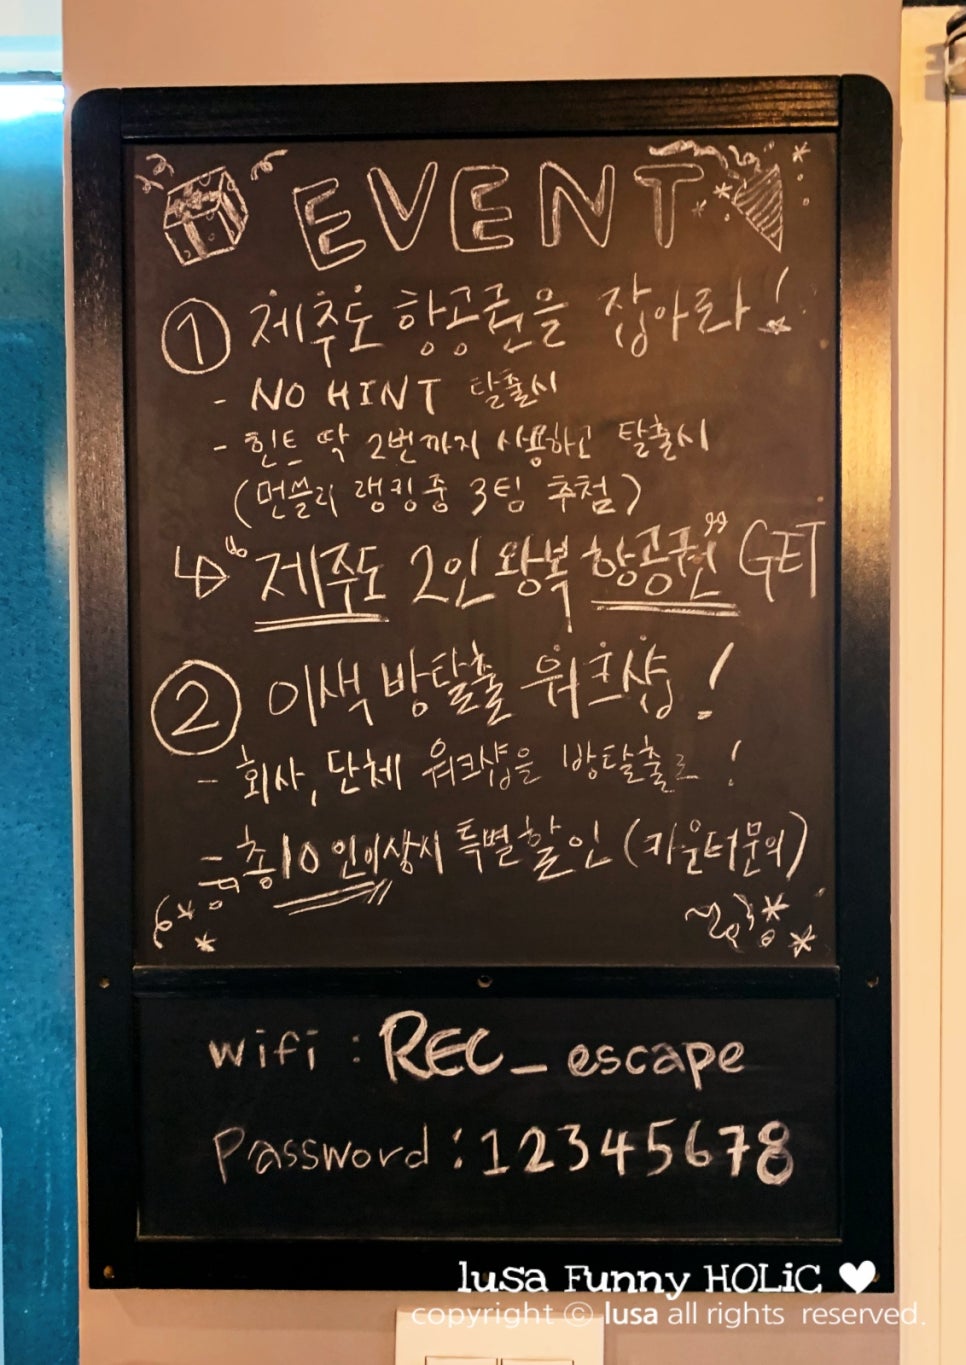 EVENT
① 제주도 항공권을 잡아라!
- NO HINT 탈출시
- 힌트 딱 2번까지 사용하고 탈출시
(먼쓸리 랭킹중 3팀 추첨)
↳ "제주도 2인 왕복 항공권" GET
② 이색 방탈출 워크샵!
- 회사, 단체 워크샵을 방탈출로!
총 10인이상시 특별할인 (카운터문의)
wifi : REC_escape
Password : 12345678
lusa Funny HOLiC ♥
copyright © lusa all rights reserved.